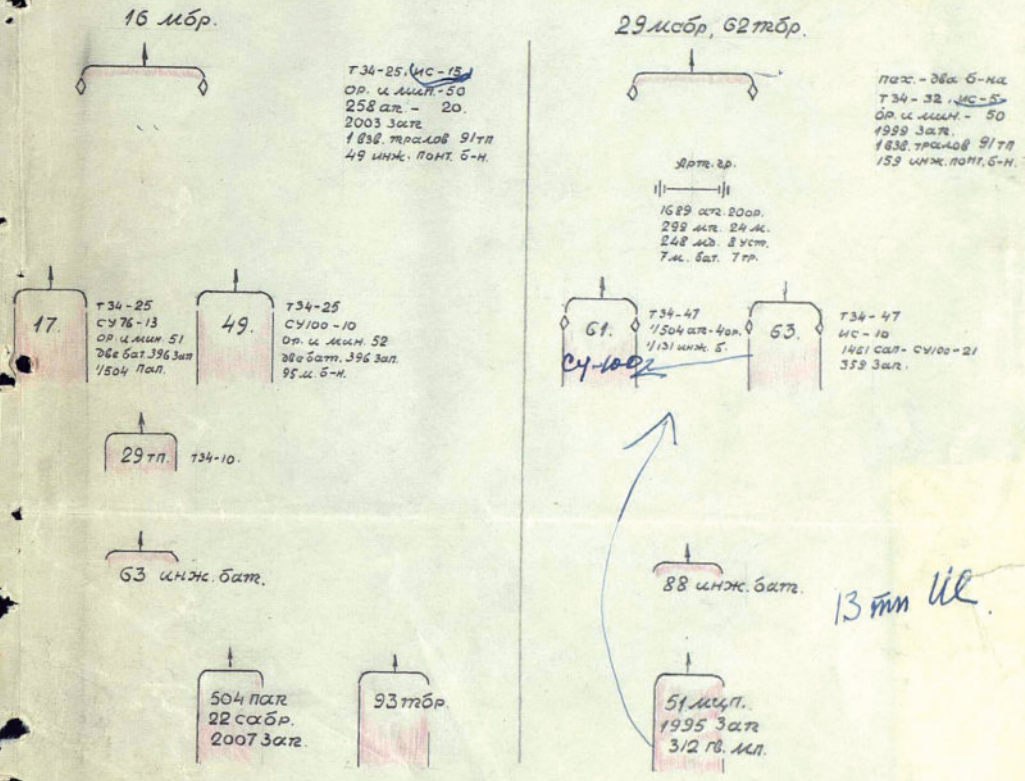 16 мбр.
Т34-25, ИС-15
ор. и мин. -50
258 ап. - 20.
2003 зап
1 взв. тралов 9/тп
49 инж. понт. б-н.
17.
Т34-25
СУ76-13
ор. и мин. 51
две бат. 396 зап
1/504 пап.
49.
Т34-25
СУ100-10
ор. и мин. 52
две бат. 396 зап.
95 м. б-н.
29 тп.
Т34-10.
63 инж. бат.
504 пап
22 сабр.
2007 зап.
93 тбр.
29 мсбр, 62 тбр.
пех. - два б-на
Т34-32, ИС-5
ор. и мин. - 50
1999 зап.
1 взв. тралов 9/тп
159 инж. понт. б-н.
Арт. гр.
1689 ап. 20 ор.
299 мп. 24 м.
248 мд. 8 уст.
7 м. бат. 7 тр.
61.
Т34-47
1/504 ап - 4 ор.
1/131 инж. б.
63.
Т34-47
ИС-10
1461 сап - СУ100-21
359 зап.
88 инж. бат.
13 тп ИС.
51 мцп.
1995 зап
312 гв. мп.